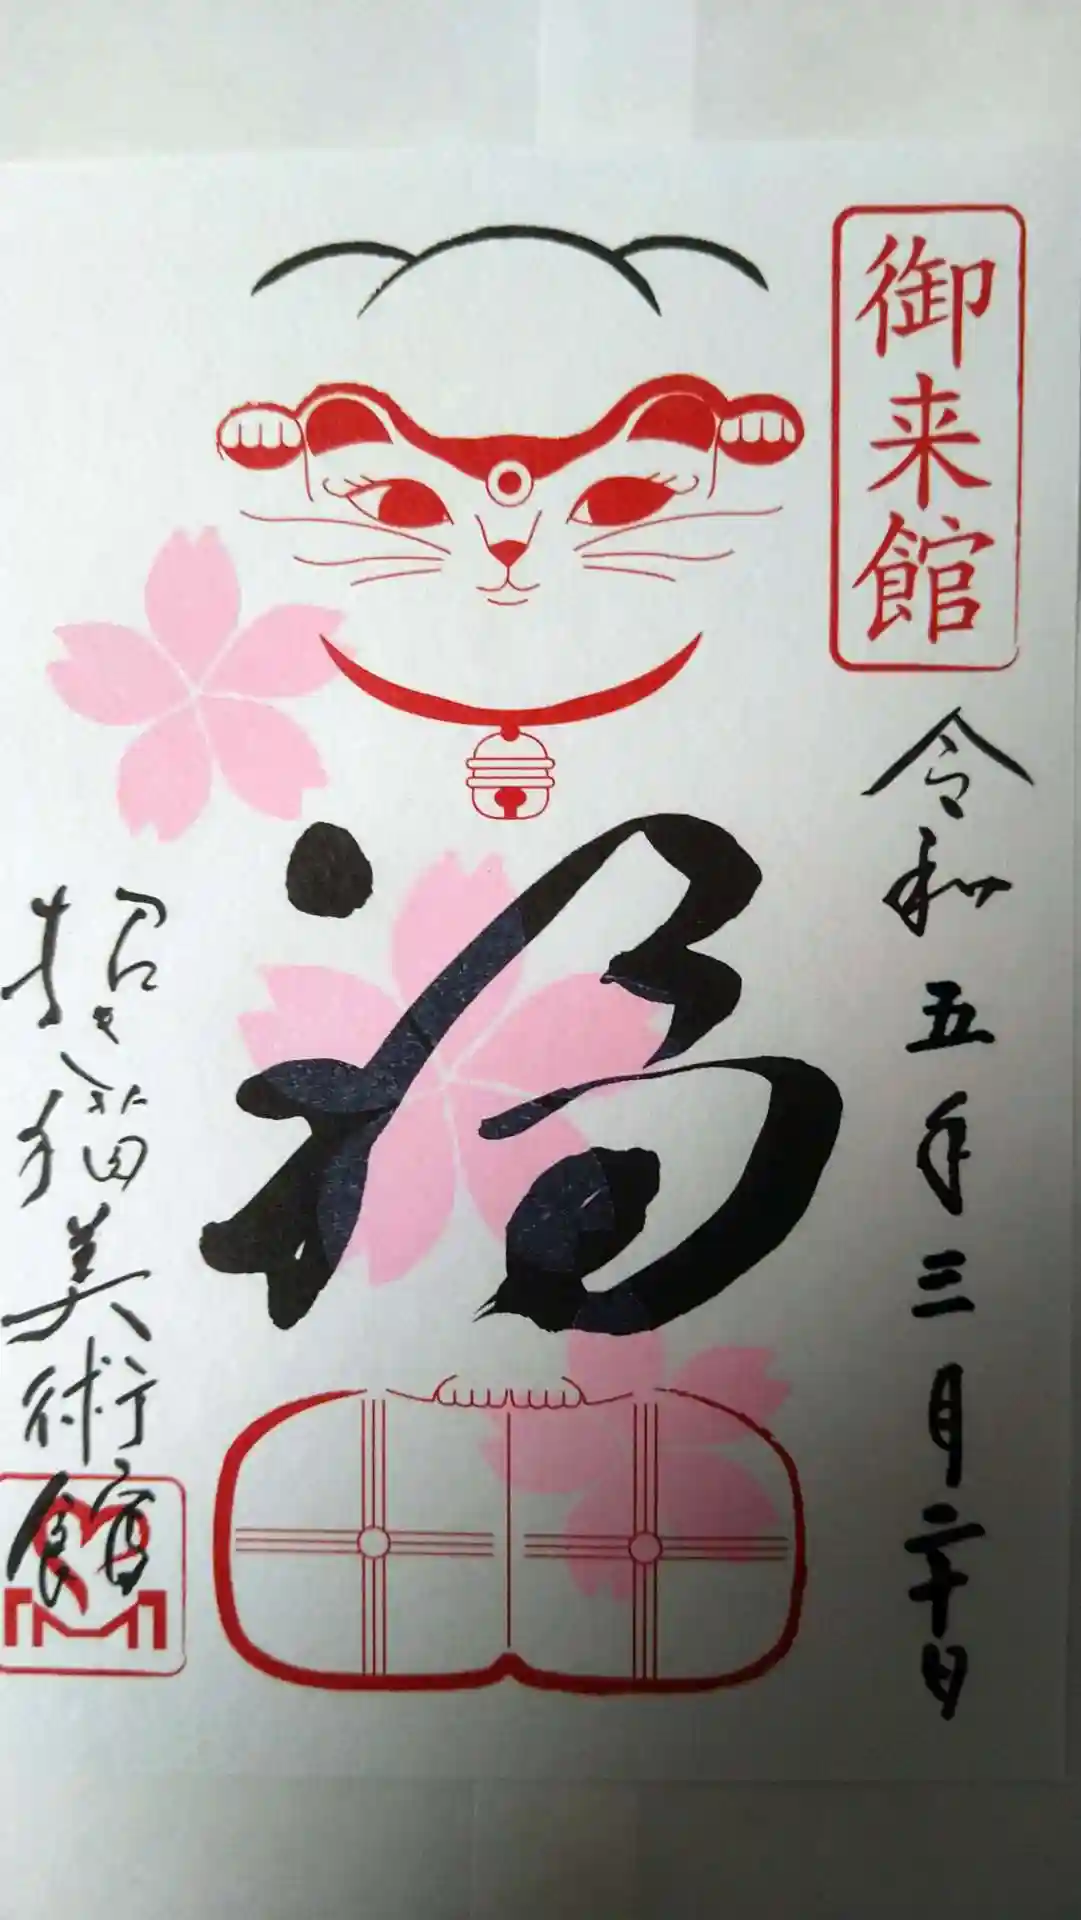 御来館
令和五年三月二十日
福
招き猫美術館